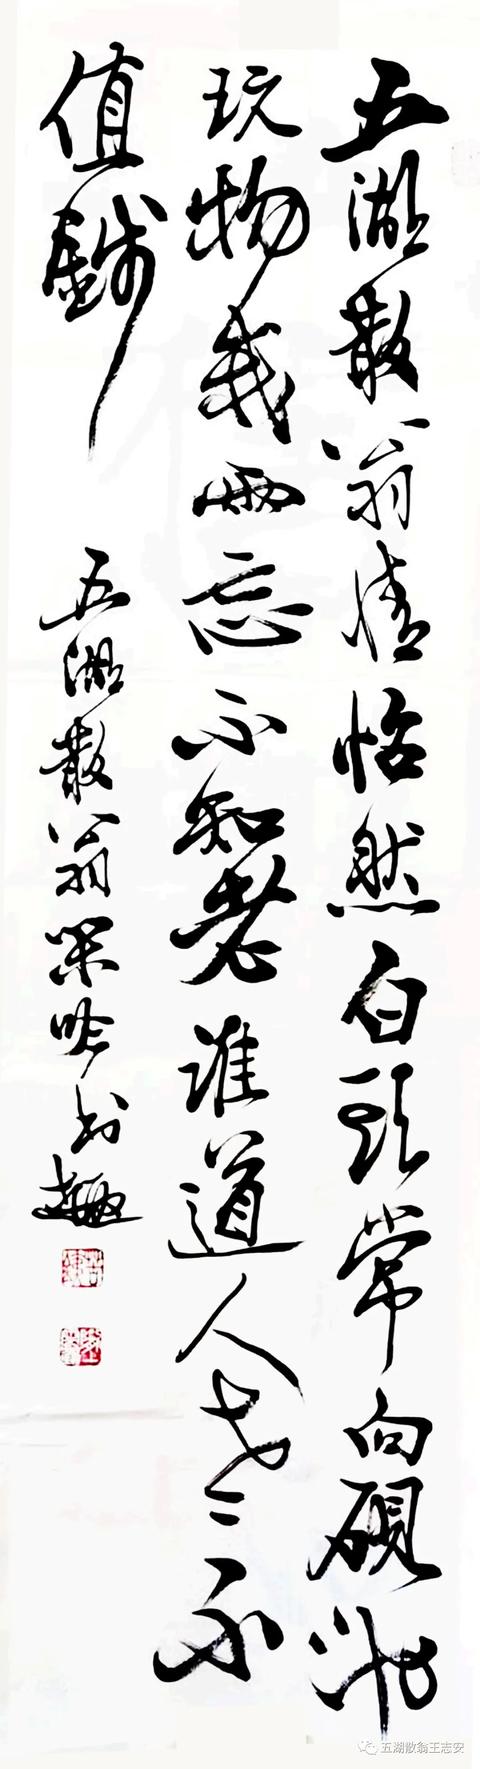 五湖散翁情怡然白頭常向硯池
玩物我兩忘不知老誰道人老不
值錢
五湖散翁閑吟书趣
五湖散翁王志安